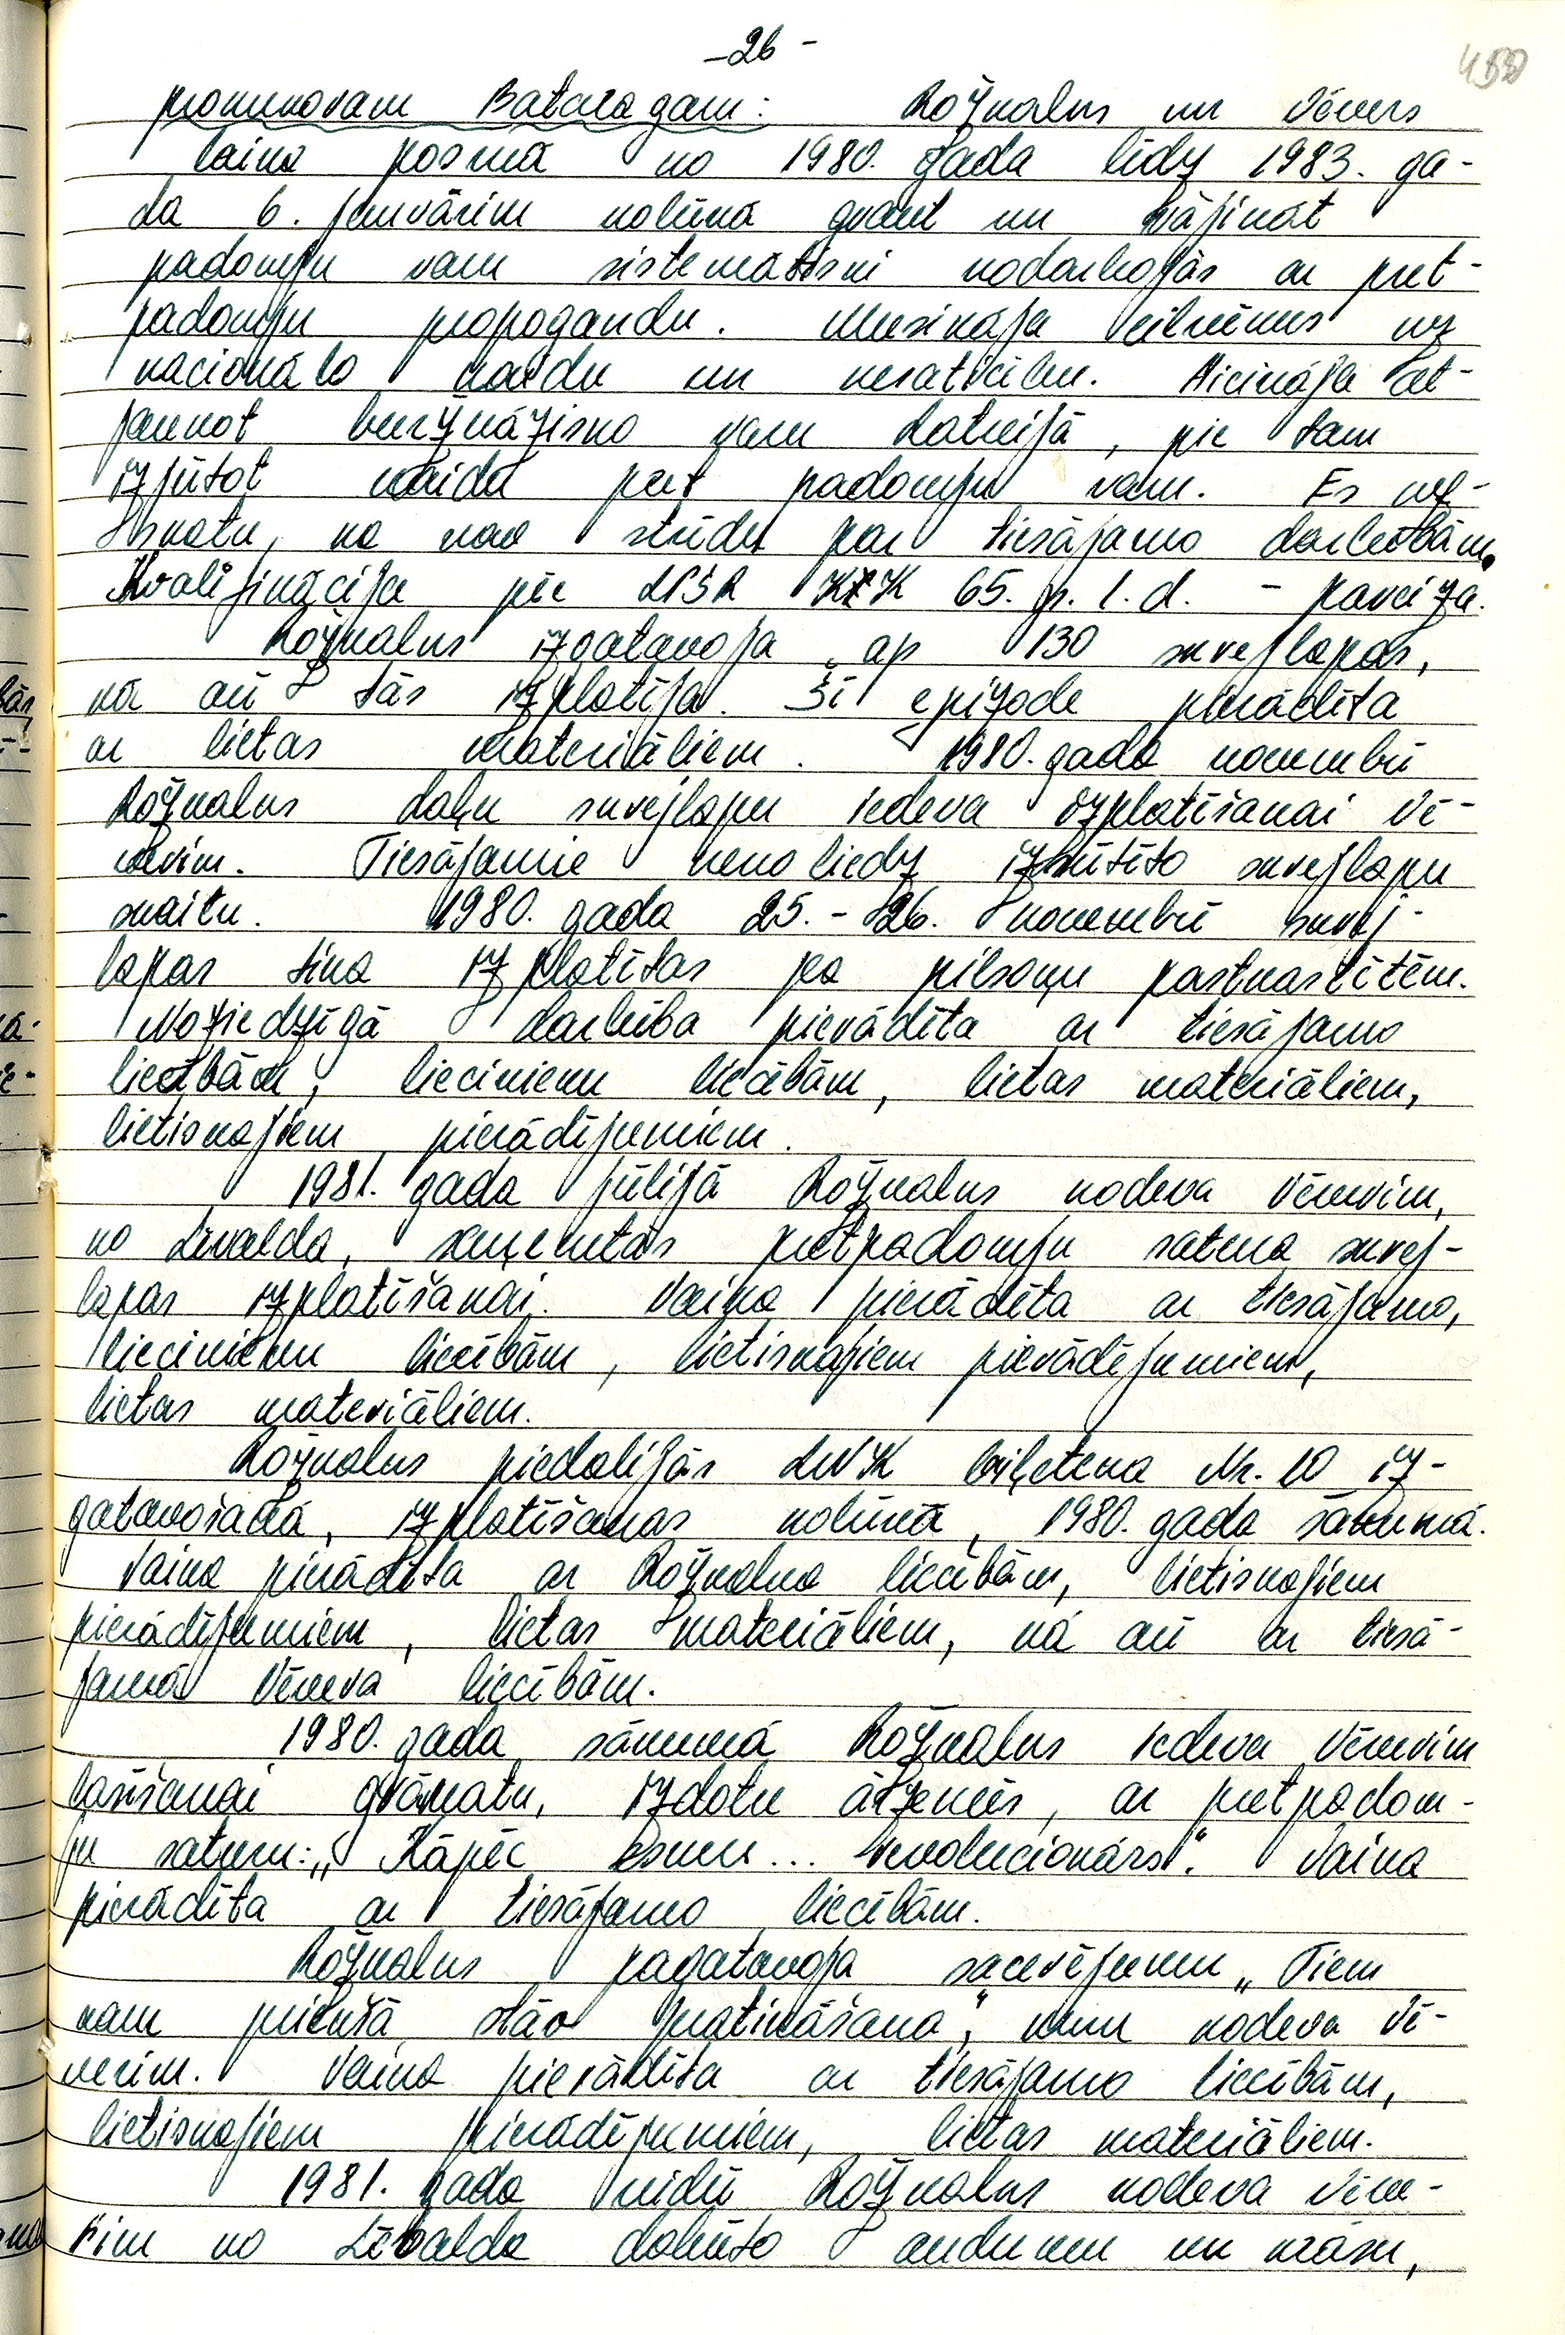 -26-
prokurovam Bataragam: Rožkalns un Vēvers
laika posmā no 1980. gada līdz 1983. ga-
da 6. janvārim nolūkā graut un vājināt
padomju varu sistemātiski nodarbojās ar pret-
padomju propogandu. Musināja cilvēkus uz
nacionālo naidu un nesaticību. Aicināja at-
jaunot buržuāzisko varu Latvijā, pie tam
izjūtot naidu pret padomju varu. Es uz-
skatu, ka nav strīdu par tiesājamo darbībām.
Kvalifikācija pēc LPSR KK 65. p. 1. d. - pareiza.
Rožkalns izgatavoja ap 130 skrejlapas,
kā arī tās izplatīja. Šī epizode pierādīta
ar lietas materiāliem. 1980. gada novembrī
Rožkalns daļu skrejlapu iedeva izplatīšanai Vē-
verim. Tiesājamie nenoliedz izsūtīto skrejlapu
skaitu. 1980. gada 25.-26. novembrī skrej-
lapas tika izplatītas pa pilsoņu pastkastītēm.
Noziedzīgā darbība pierādīta ar tiesājamo
liecībām, liecinieku liecībām, lietas materiāliem,
lietiskajiem pierādījumiem.
1981. gada jūlijā Rožkalns nodeva Vēverim,
no Lēvalda, saņemtās pretpadomju satura skrej-
lapas izplatīšanai. Vaina pierādīta ar tiesājamo,
liecinieku liecībām, lietiskajiem pierādījumiem,
lietas materiāliem.
Rožkalns piedalījās LNK biļetena Nr. 10 iz-
gatavošanā, izplatīšanas nolūkā, 1980. gada sākumā.
Vaina pierādīta ar Rožkalna liecībām, lietiskajiem
pierādījumiem, lietas materiāliem, kā arī ar tiesā-
jamā Vēvera liecībām.
1980. gada sākumā Rožkalns iedeva Vēverim
lasīšanai grāmatu, izdotu ārzemēs, ar pretpadom-
ju saturu: „Kāpēc esmu... revolucionārs". Vaina
pierādīta ar tiesājamo liecībām.
Rožkalns pagatavoja sacerējumu „Tiem
kam priekšā stāv pratināšana", kuru nodeva Vē-
verim. Vaina pierādīta ar tiesājamo liecībām,
lietiskajiem pierādījumiem, lietas materiāliem.
1981. gada vidū Rožkalns nodeva Vēve-
rim no Lēvalda dabūto audumu un krāsu,